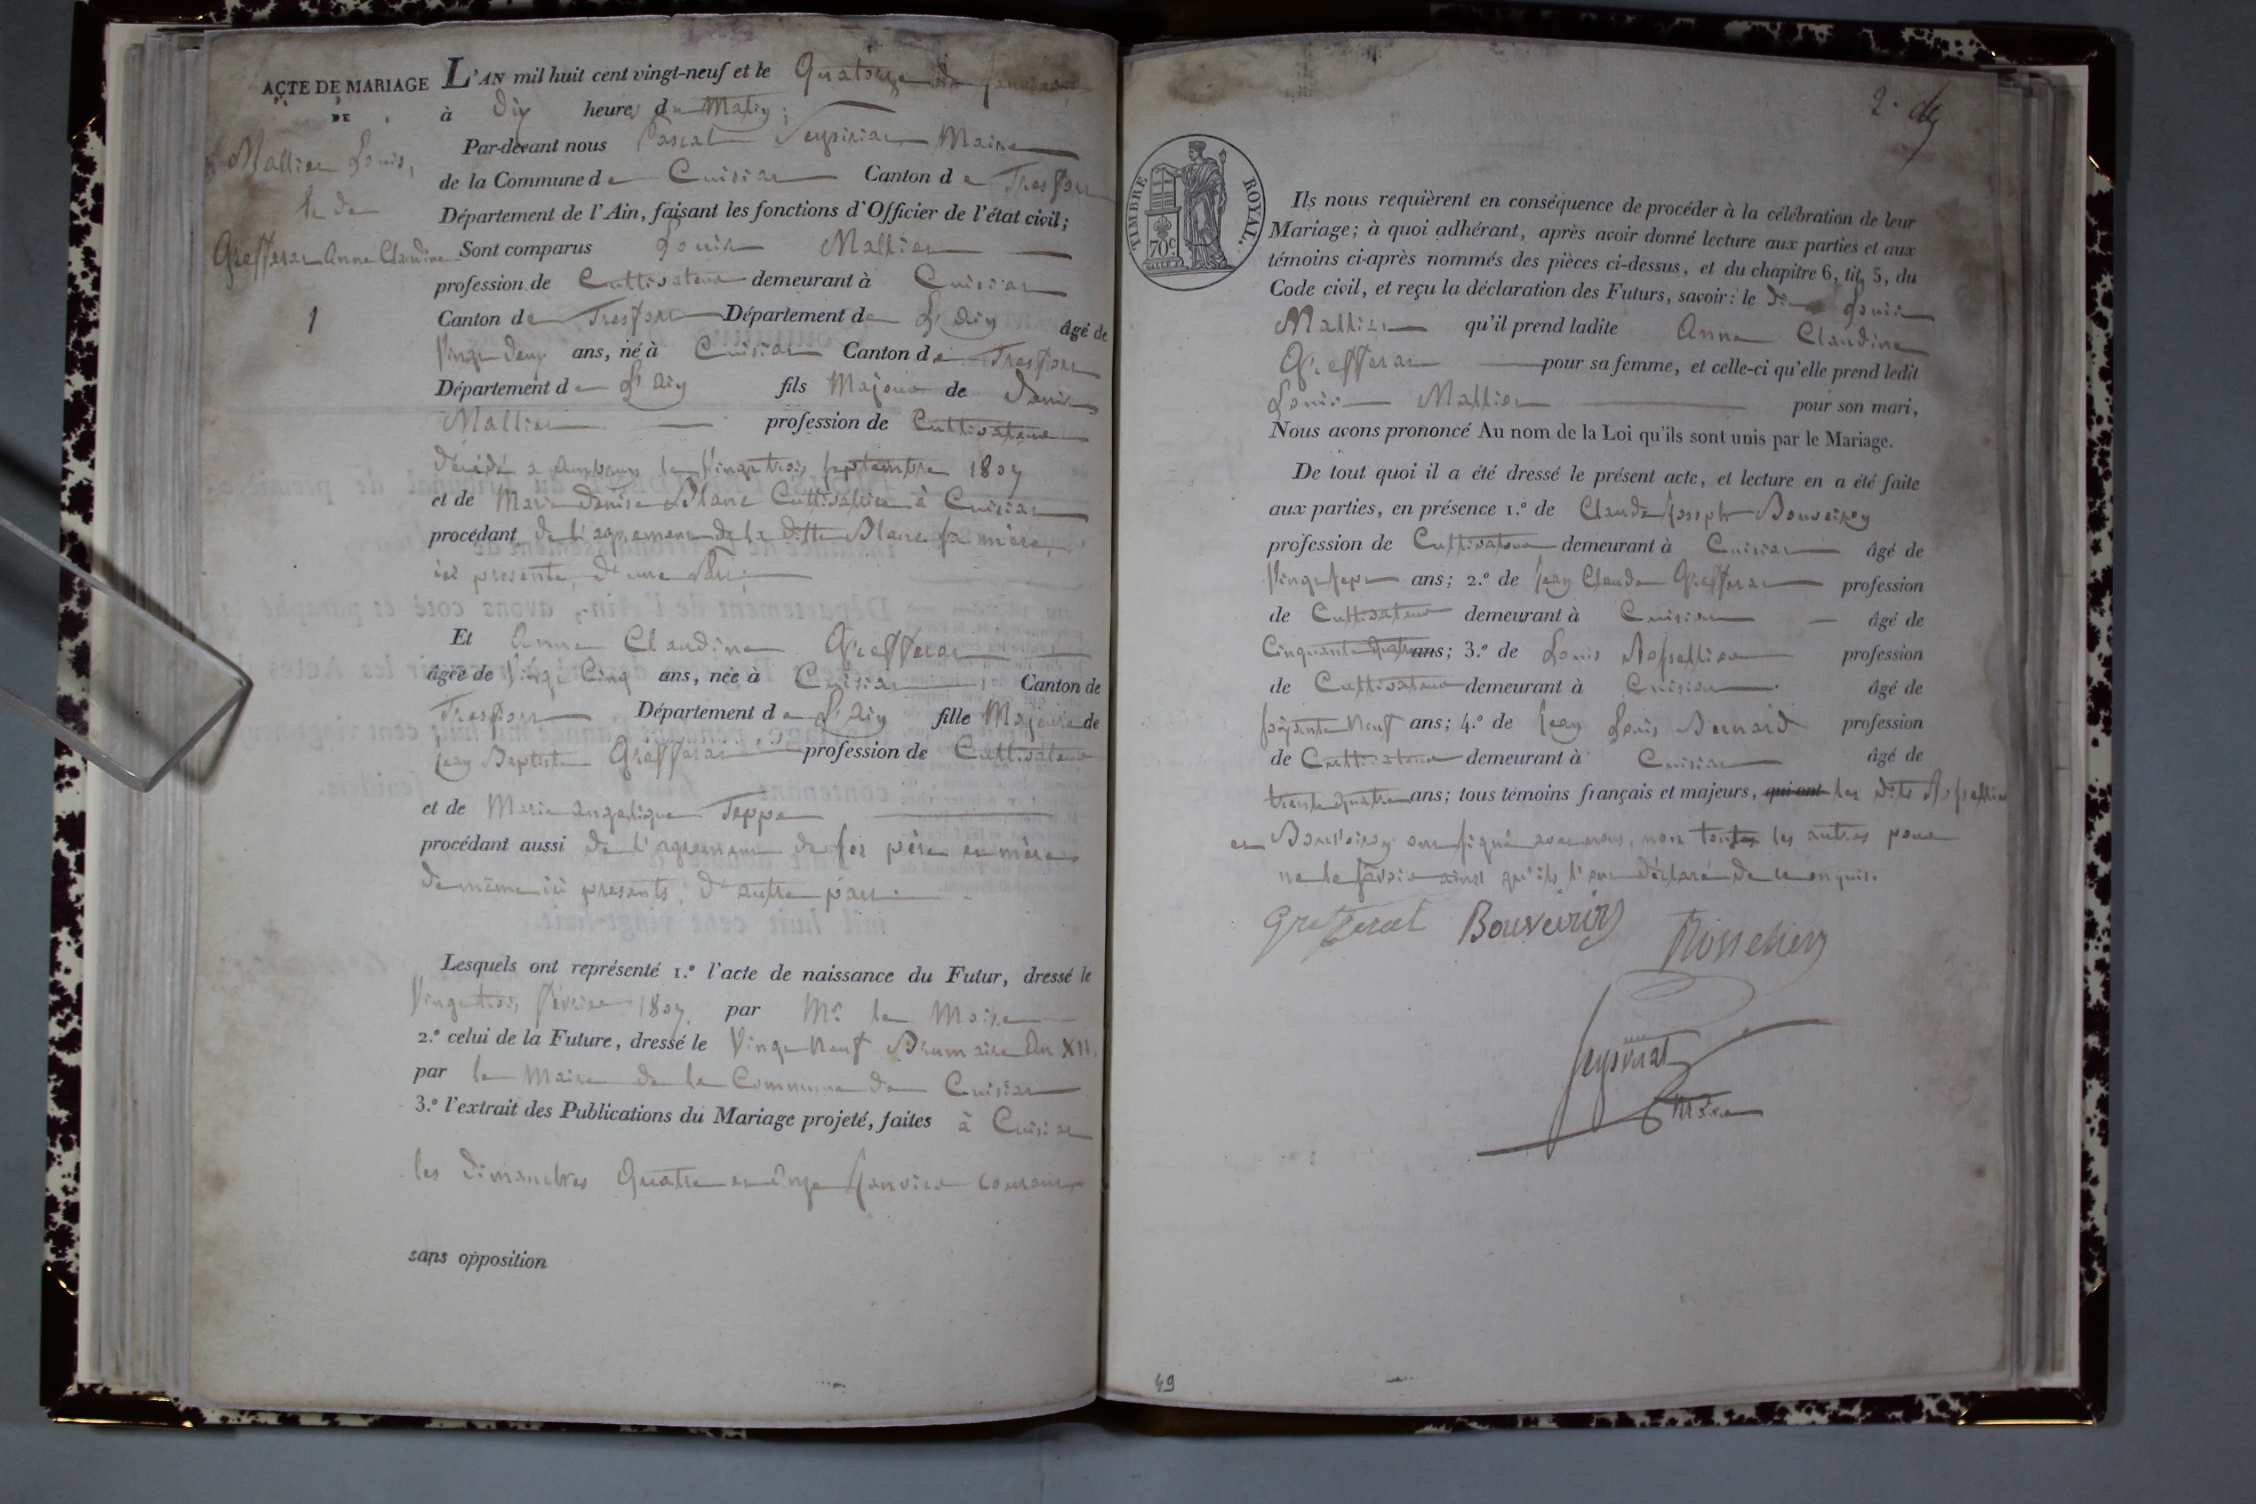 ACTE DE MARIAGE
DE
Mallier Louis,
& de
Grefferat Anne Claudine
1
L'AN mil huit cent vingt-neuf et le Quatorze du Janvier
à Dix heures du Matin;
Par-devant nous Pascal Maire
de la Commune de Cuisiat Canton de Treffort
Département de l'Ain, faisant les fonctions d'Officier de l'état civil;
Sont comparus Louis Mallier
profession de Cultivateur demeurant à Cuisiat
Canton de Treffort Département de L'Ain âgé de
Vingt deux ans, né à Cuisiat Canton de Treffort
Département de L'Ain fils Majeur de Denis
Mallier profession de Cultivateur
Décédé a le Vingt trois Septembre 1807
et de Marie Denise Blanc Cultivatrice à Cuisiat
procédant de l'agrement de la ditte Blanc sa mère,
ici presente, d'une Part;
Et Anne Claudine Grefferat
âgée de Vingt Cinq ans, née à Cuisiat Canton de
Treffort Département de L'Ain fille Majeure de
Jean Baptiste Grefferat profession de Cultivateur
et de Marie Angelique Teppe
procédant aussi de l'agrement de ses père et mère
de même ici presents, d'autre part.
Lesquels ont représenté 1.º l'acte de naissance du Futur, dressé le
Vingt trois Février 1807 par Mr. le Maire
2.º celui de la Future, dressé le Vingt Neuf Brumaire An XII.
par le Maire de la Commune de Cuisiat
3.º l'extrait des Publications du Mariage projeté, faites à Cuisiat
les dimanches Quatre et Onze Janvier courant
sans opposition
2.
TIMBRE ROYAL.
70 c.
Ils nous requièrent en conséquence de procéder à la célébration de leur
Mariage; à quoi adhérant, après avoir donné lecture aux parties et aux
témoins ci-après nommés des pièces ci-dessus, et du chapitre 6, tit. 5, du
Code civil, et reçu la déclaration des Futurs, savoir: le dit Louis
Mallier qu'il prend ladite Anne Claudine
Grefferat pour sa femme, et celle-ci qu'elle prend ledit
Louis Mallier pour son mari,
Nous avons prononcé Au nom de la Loi qu'ils sont unis par le Mariage.
De tout quoi il a été dressé le présent acte, et lecture en a été faite
aux parties, en présence 1.º de Claude Joseph Bouveiron
profession de Cultivateur demeurant à Cuisiat âgé de
Vingt sept ans; 2.º de Jean Claude Grefferat profession
de Cultivateur demeurant à Cuisiat âgé de
Cinquante Quatre ans; 3.º de Louis Rossellier profession
de Cultivateur demeurant à Cuisiat âgé de
soixante Neuf ans; 4.º de Jean Louis Bernard profession
de Cultivateur demeurant à Cuisiat âgé de
trente Quatre ans; tous témoins français et majeurs, qui ont les dits Rossellier
et Bouveiron ont signé avec nous, non les autres pour
ne le savoir ainsi qu'ils l'ont déclaré de ce enquis.
Grefferat Bouveiron
Maire
49